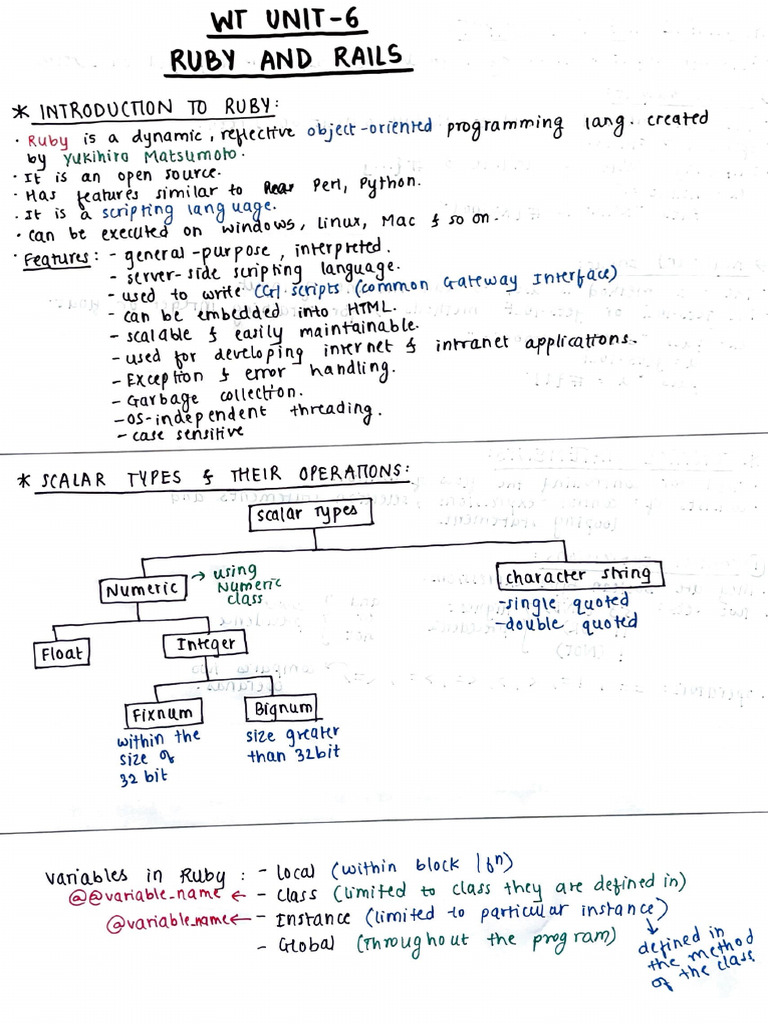 WT UNIT-6
RUBY AND RAILS
* INTRODUCTION TO RUBY:
· Ruby is a dynamic, reflective object-oriented programming lang. created
by Yukihiro Matsumoto.
· It is an open source.
· Has features similar to Perl, Python.
· It is a scripting language.
· can be executed on windows, Linux, Mac & so on.
· Features: - general-purpose, interpreted.
- server-side scripting language.
- used to write CGI scripts (common Gateway Interface)
- can be embedded into HTML.
- scalable & easily maintainable.
- used for developing internet & intranet applications.
- Exception & error handling.
- Garbage collection.
- OS-independent threading.
- case sensitive
* SCALAR TYPES & THEIR OPERATIONS:
scalar Types
Numeric → using
Numeric
class
character string
- single quoted
- double quoted
Float
Integer
Fixnum
within the
size of
32 bit
Bignum
size greater
than 32bit
variables in Ruby : - Local (within block / fn)
@@variable_name ← - Class (limited to class they are defined in)
@variable_name ← - Instance (limited to particular instance)
- Global (throughout the program)
↓
defined in
the method
of the class.